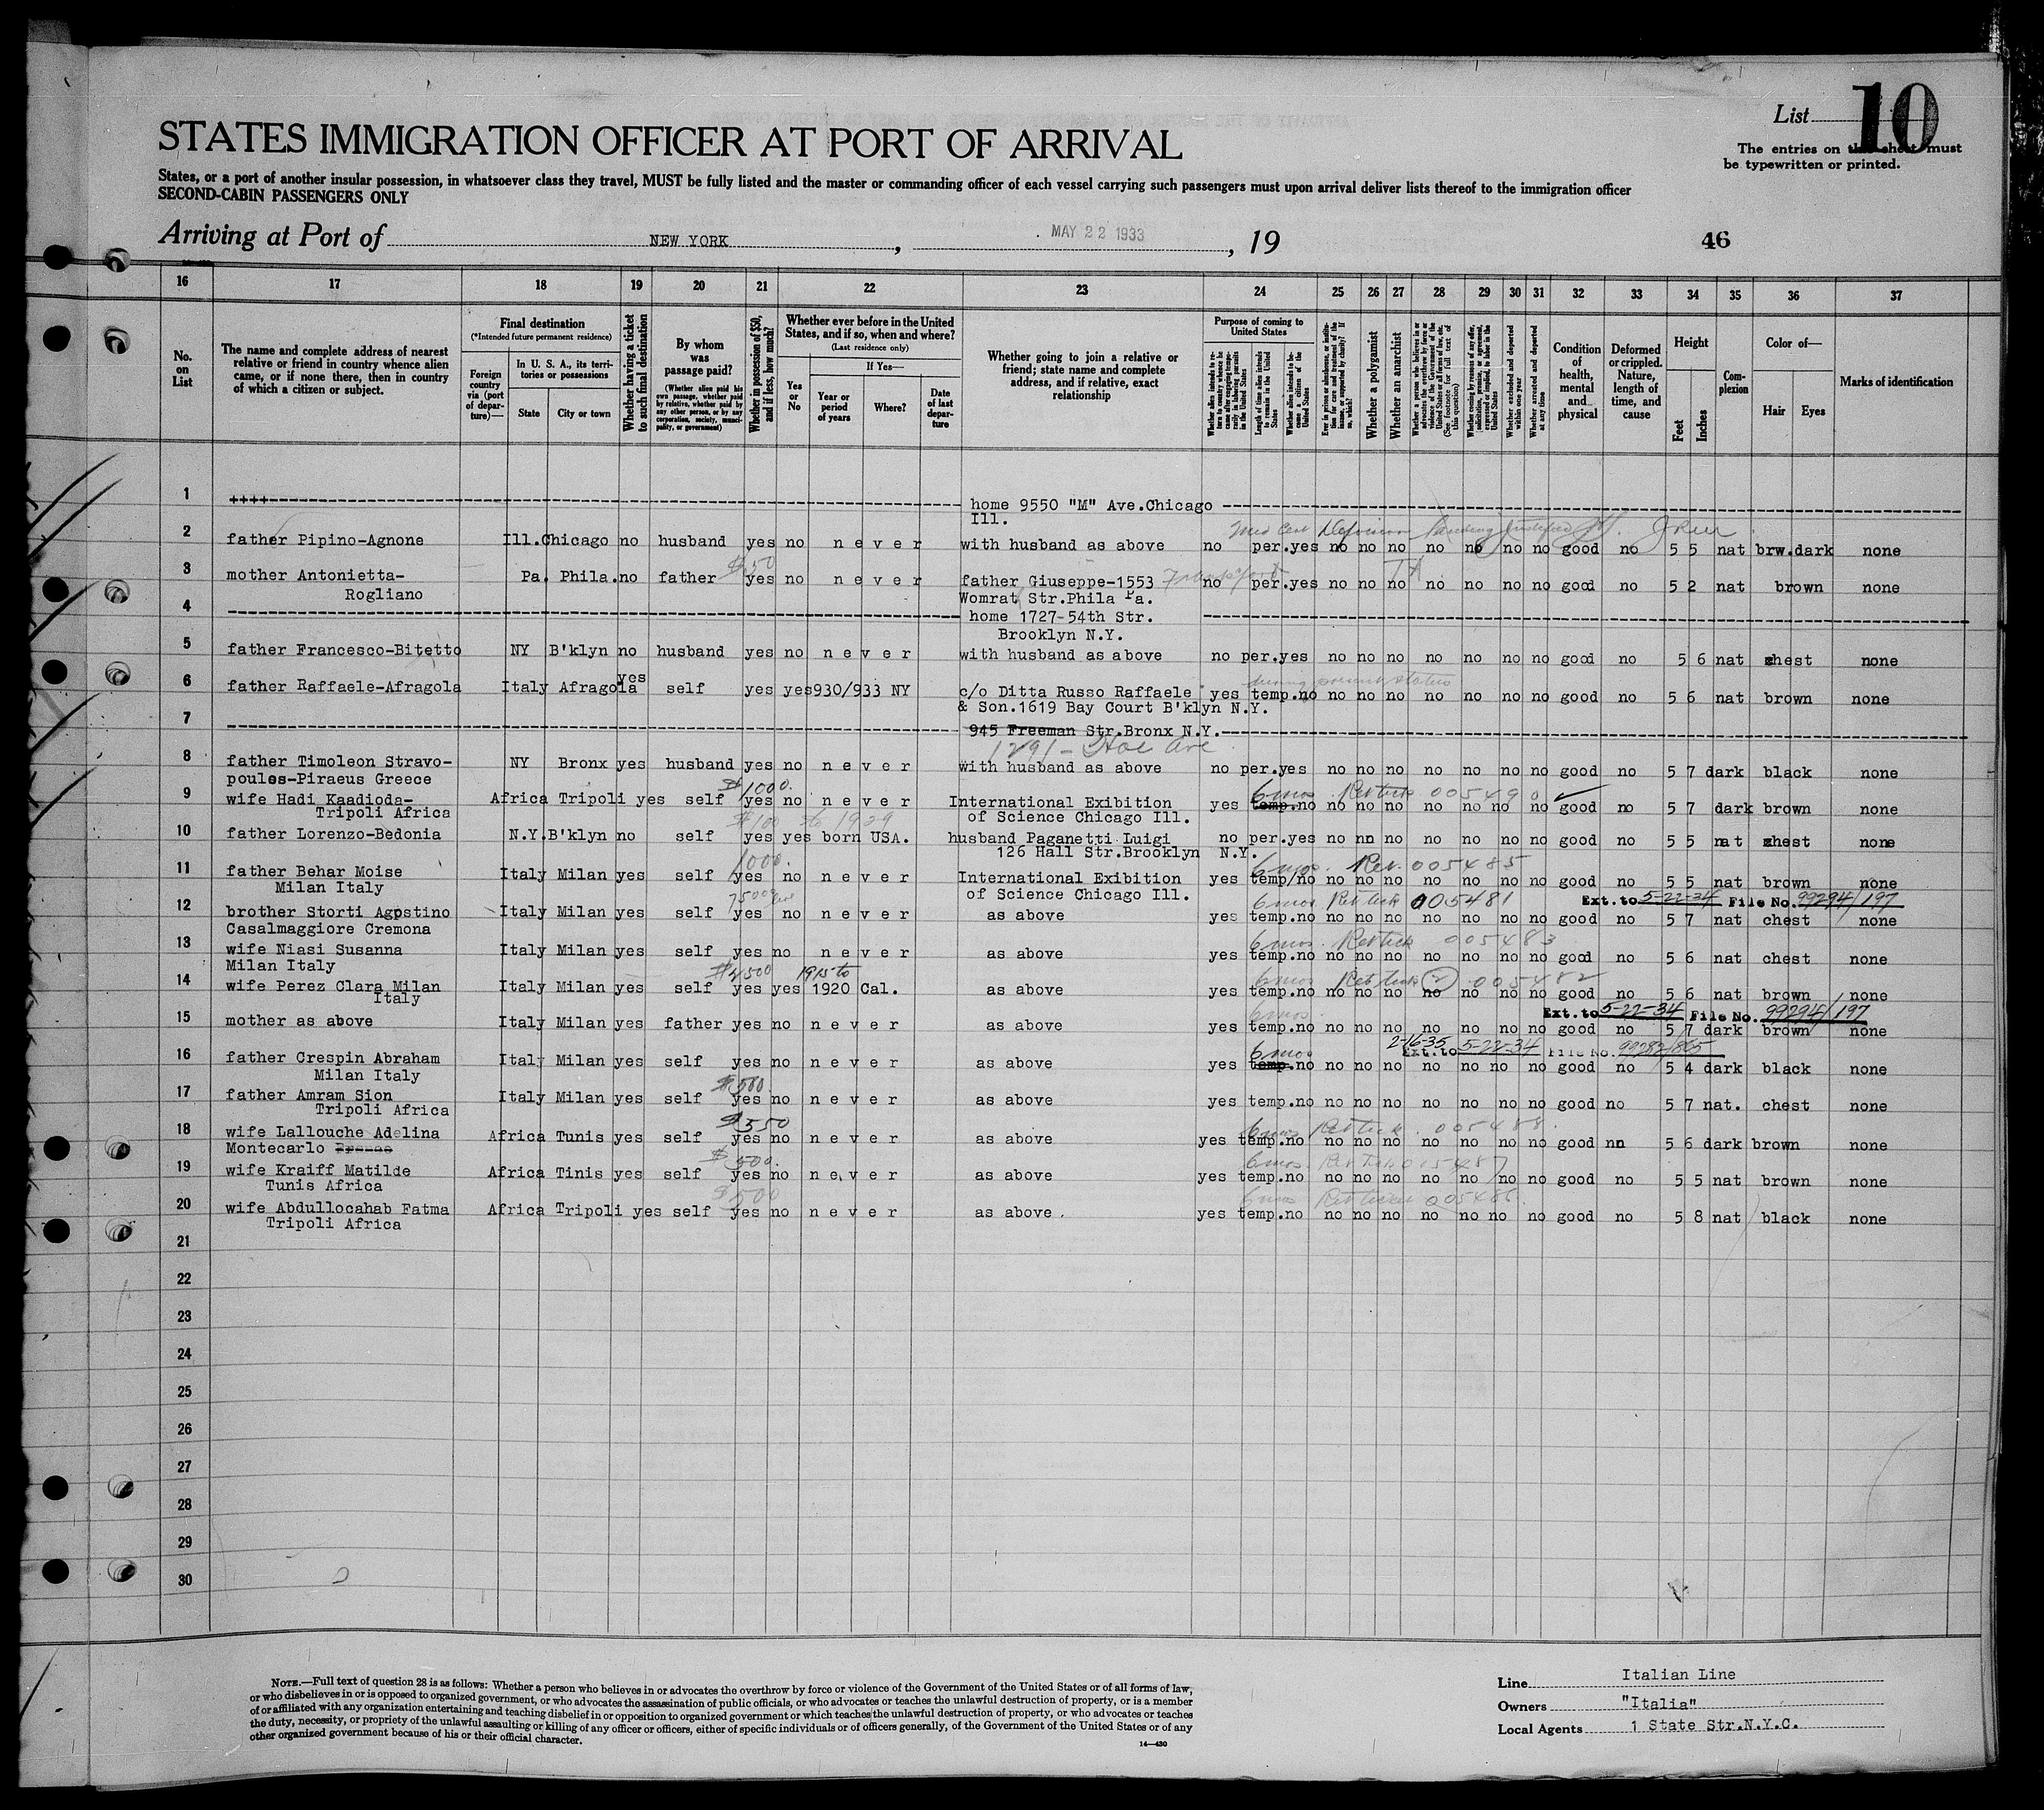 List 10
The entries on this sheet must
be typewritten or printed.
STATES IMMIGRATION OFFICER AT PORT OF ARRIVAL
States, or a port of another insular possession, in whatsoever class they travel, MUST be fully listed and the master or commanding officer of each vessel carrying such passengers must upon arrival deliver lists thereof to the immigration officer
SECOND-CABIN PASSENGERS ONLY
Arriving at Port of NEW YORK , MAY 22 1933 , 19 46
16 17 18 19 20 21 22 23 24 25 26 27 28 29 30 31 32 33 34 35 36 37
No. on List
The name and complete address of nearest relative or friend in country whence alien came, or if none there, then in country of which a citizen or subject.
Final destination
(*Intended future permanent residence)
Foreign country via (port of departure)—
In U. S. A., its territories or possessions
State
City or town
Whether having a ticket to such final destination
By whom was passage paid?
(Whether alien paid his own passage, whether paid by relative, whether paid by any other person, or by any corporation, society, municipality, or government)
Whether in possession of $50, and if less, how much?
Whether ever before in the United States, and if so, when and where?
(Last residence only)
Yes or No
If Yes—
Year or period of years
Where?
Date of last departure
Whether going to join a relative or friend; state name and complete address, and if relative, exact relationship
Purpose of coming to United States
Length of time alien intends to remain in the United States
Whether alien intends to become a citizen of the United States
Whether a polygamist
Whether an anarchist
Whether excluded and deported within one year
Whether arrested and deported at any time
Condition of health, mental and physical
Deformed or crippled. Nature, length of time, and cause
Height
Feet
Inches
Complexion
Color of—
Hair
Eyes
Marks of identification
1 ++++ home 9550 "M" Ave.Chicago
Ill.
2 father Pipino-Agnone Ill.Chicago no husband yes no never with husband as above no per.yes no no no no no no no good no 5 5 nat brw.dark none
$50
3 mother Antonietta- Pa. Phila.no father yes no never father Giuseppe-1553 no per.yes no no no no no no no good no 5 2 nat brown none
Rogliano Womrat Str.Phila Pa.
4 home 1727-54th Str.
Brooklyn N.Y.
5 father Francesco-Bitetto NY B'klyn no husband yes no never with husband as above no per.yes no no no no no no no good no 5 6 nat chest none
during present status
6 father Raffaele-Afragola Italy Afragola yes self yes yes930/933 NY c/o Ditta Russo Raffaele yes temp.no no no no no no no no good no 5 6 nat brown none
& Son.1619 Bay Court B'klyn N.Y.
7 945 Freeman Str.Bronx N.Y.
1291 - Hoe Ave
8 father Timoleon Stravo- NY Bronx yes husband yes no never with husband as above no per.yes no no no no no no no good no 5 7 dark black none
poulos-Piraeus Greece
$1000. 6 mos Ret tick 005490
9 wife Hadi Kaadioda- Africa Tripoli yes self yes no never International Exibition yes temp.no no no no no no no no good no 5 7 dark brown none
Tripoli Africa of Science Chicago Ill.
$100 1929
10 father Lorenzo-Bedonia N.Y.B'klyn no self yes yes born USA. husband Paganetti Luigi no per.yes no nn no no no no no good no 5 5 nat chest none
126 Hall Str.Brooklyn N.Y.
1000. 6 mos. Ret. 005485
11 father Behar Moise Italy Milan yes self yes no never International Exibition yes temp/no no no no no no no no good no 5 5 nat brown none
Milan Italy of Science Chicago Ill.
6 mos Ret tick 005481 Ext. to 5-22-34 File No. 99294/197
12 brother Storti Agostino Italy Milan yes self yes no never as above yes temp.no no no no no no no no good no 5 7 nat chest none
Casalmaggiore Cremona
6 mos. Ret tick 005483
13 wife Niasi Susanna Italy Milan yes self yes no never as above yes temp.no no no no no no no no good no 5 6 nat chest none
Milan Italy
1915 to 6 mos Ret tick (2) 005482
14 wife Perez Clara Milan Italy Milan yes self yes yes 1920 Cal. as above yes temp.no no no no no no no no good no 5 6 nat brown none
Italy
6 mos. Ext. to 5-22-34 File No. 99294/197
15 mother as above Italy Milan yes father yes no never as above yes temp.no no no no no no no no good no 5 7 dark brown none
6 mos 2-16-35 Ext. to 5-22-34 File No. 99282/865
16 father Crespin Abraham Italy Milan yes self yes no never as above yes temp.no no no no no no no no good no 5 4 dark black none
Milan Italy
$500.
17 father Amram Sion Italy Milan yes self yes no never as above yes temp.no no no no no no no no good no 5 7 nat. chest none
Tripoli Africa
$550 6 mos Ret tick. 005488.
18 wife Lallouche Adelina Africa Tunis yes self yes no never as above yes temp.no no no no no no no no good nn 5 6 dark brown none
Montecarlo
$500. 6 mos. Ret Tick
19 wife Kraiff Matilde Africa Tinis yes self yes no never as above yes temp.no no no no no no no no good no 5 5 nat brown none
Tunis Africa
$500 6 mos Ret ticket 005486.
20 wife Abdullocahab Fatma Africa Tripoli yes self yes no never as above. yes temp.no no no no no no no no good no 5 8 nat black none
Tripoli Africa
21
22
23
24
25
26
27
28
29
30
NOTE.—Full text of question 28 is as follows: Whether a person who believes in or advocates the overthrow by force or violence of the Government of the United States or of all forms of law,
or who disbelieves in or is opposed to organized government, or who advocates the assassination of public officials, or who advocates or teaches the unlawful destruction of property, or is a member
of or affiliated with any organization entertaining and teaching disbelief in or opposition to organized government or which teaches the unlawful destruction of property, or who advocates or teaches
the duty, necessity, or propriety of the unlawful assaulting or killing of any officer or officers, either of specific individuals or of officers generally, of the Government of the United States or of any
other organized government because of his or their official character.
14—430
Line Italian Line
Owners "Italia"
Local Agents 1 State Str.N.Y.C.